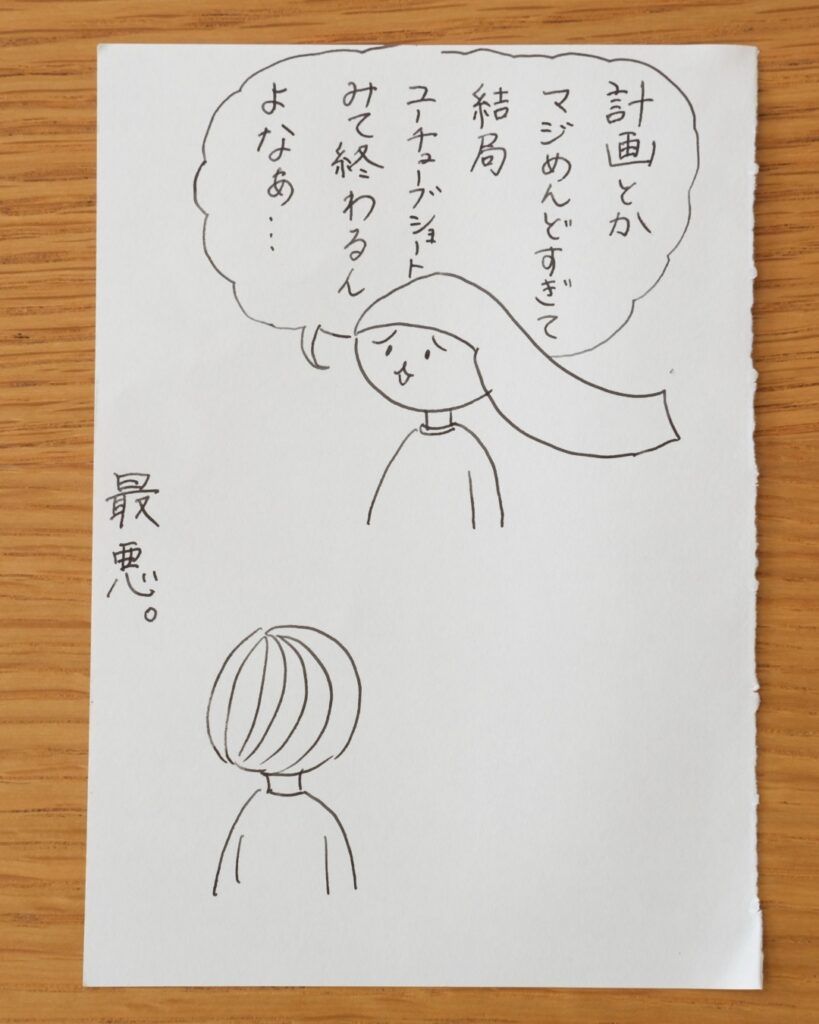 計画とか
マジめんどすぎて
結局
ユーチューブショート
みて終わるん
よなぁ…
最悪。